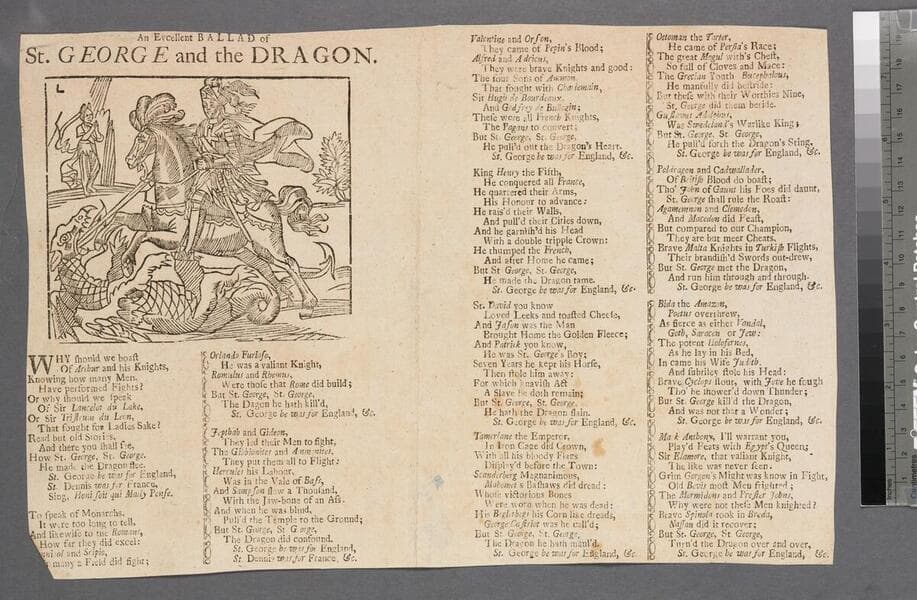 An Excellent BALLAD of
St. GEORGE and the DRAGON.
WHY should we boast
Of Arthur and his Knights,
Knowing how many Men
Have performed Fights?
Or why should we speak
Of Sir Lancelot du Lake,
Or Sir Tristrum du Leon,
That fought for Ladies Sake?
Read but old Stories,
And there you shall see,
How St. George, St. George,
He made the Dragon flee.
St. George he was for England,
St. Dennis was for France,
Sing, Honi soit qui Mal y Pense.
To speak of Monarchs,
It were too long to tell,
And likewise to the Romans,
How far they did excel:
and Scipio,
many a Field did fight;
Orlando Furioso,
He was a valiant Knight,
Romulus and Rhemus,
Were those that Rome did build;
But St. George, St. George,
The Dagon he hath kill'd,
St. George he was for England, &c.
Jepthah and Gideon,
They led their Men to fight,
The Gibbionites and Ammonites,
They put them all to Flight:
Hercules his Labour,
Was in the Vale of Bass,
And Sampson slew a Thousand,
With the Jaw-bone of an Ass.
And when he was blind,
Pull'd the Temple to the Ground;
But St. George, St George,
The Dragon did confound.
St. George he was for England,
St Dennis was for France, &c.
Valentine and Orson,
They came of Pepin's Blood;
Alfred and Adricus,
They were brave Knights and good:
The four Sons of Ammon,
That fought with Charlemain,
Sir Hugh de Bourdeaux,
And Godfrey de Bullogin;
These were all French Knights,
The Pagans to convert;
But St. George, St. George,
He pull'd out the Dragon's Heart.
St. George he was for England, &c.
King Henry the Fifth,
He conquered all France,
He quartered their Arms,
His Honour to advance:
He rais'd their Walls,
And pull'd their Cities down,
And he garnish'd his Head
With a double tripple Crown:
He thumped the French,
And after Home he came;
But St George, St. George,
He made the Dragon tame.
St. George he was for England, &c.
St. David you know
Loved Leeks and toasted Cheese,
And Jason was the Man
Brought Home the Golden Fleece;
And Patrick you know,
He was St. George's Boy;
Seven Years he kept his Horse,
Then stole him away:
For which knavish Act
A Slave he doth remain;
But St. George, St. George,
He hath the Dragon slain.
St. George he was for England, &c.
Tamerlane the Emperor,
In Iron Cage did Crown,
With all his bloody Fights
Display'd before the Town:
Scanderberg Magnanimous,
Mahomet's Bashaws did dread:
Whose victorious Bones
Were worn when he was dead:
His Beglabegs his Corn like dreads,
George Castriot was he call'd;
But St. George, St. George,
The Dragon he hath maul'd.
St. George he was for England, &c.
Ottoman the Tarter,
He came of Persia's Race;
The great Mogul with's Chest,
So full of Cloves and Mace:
The Grecian Youth Bucephalous,
He manfully did bestride:
But these with their Worthies Nine,
St. George did them deride.
Gustavus Adolphus,
Was Swedeland's Warlike King;
But St. George, St. George,
He pull'd forth the Dragon's Sting.
St. George he was for England, &c.
Peldragon and Cadwallader,
Of British Blood do boast;
Tho' John of Gaunt his Foes did daunt,
St. George shall rule the Roast:
Agamemnon and Clemedon,
And Macedon did Feast,
But compared to our Champion,
They are but meer Cheats.
Brave Malta Knights in Turkish Flights,
Their brandish'd Swords out-drew,
But St. George met the Dragon,
And run him through and through.
St. George he was for England, &c.
Bida the Amazon,
overthrew,
As fierce as either Vandal,
Goth, Saracen or Jew:
The potent Holofernes,
As he lay in his Bed,
In came his Wife Judith,
And subtiley stole his Head:
Brave Cyclops stout, with Jove he fough
Tho' he shower'd down Thunder;
But St. George kill'd the Dragon,
And was not that a Wonder;
St. George he was for England, &c.
Mark Anthony, I'll warrant you,
Play'd Feats with Egypt's Queen;
Sir Elamore, that valiant Knight,
The like was never seen.
Grim Gorgon's Might was know in Fight,
Old Bevis most Men frighted;
The Mermidons and Prester Johns,
Why were not these Men knighted?
Brave Spinola took in Breda,
Nassau did it recover;
But St. George, St. George,
Turn'd the Dragon over and over.
St. George he was for England, &c.